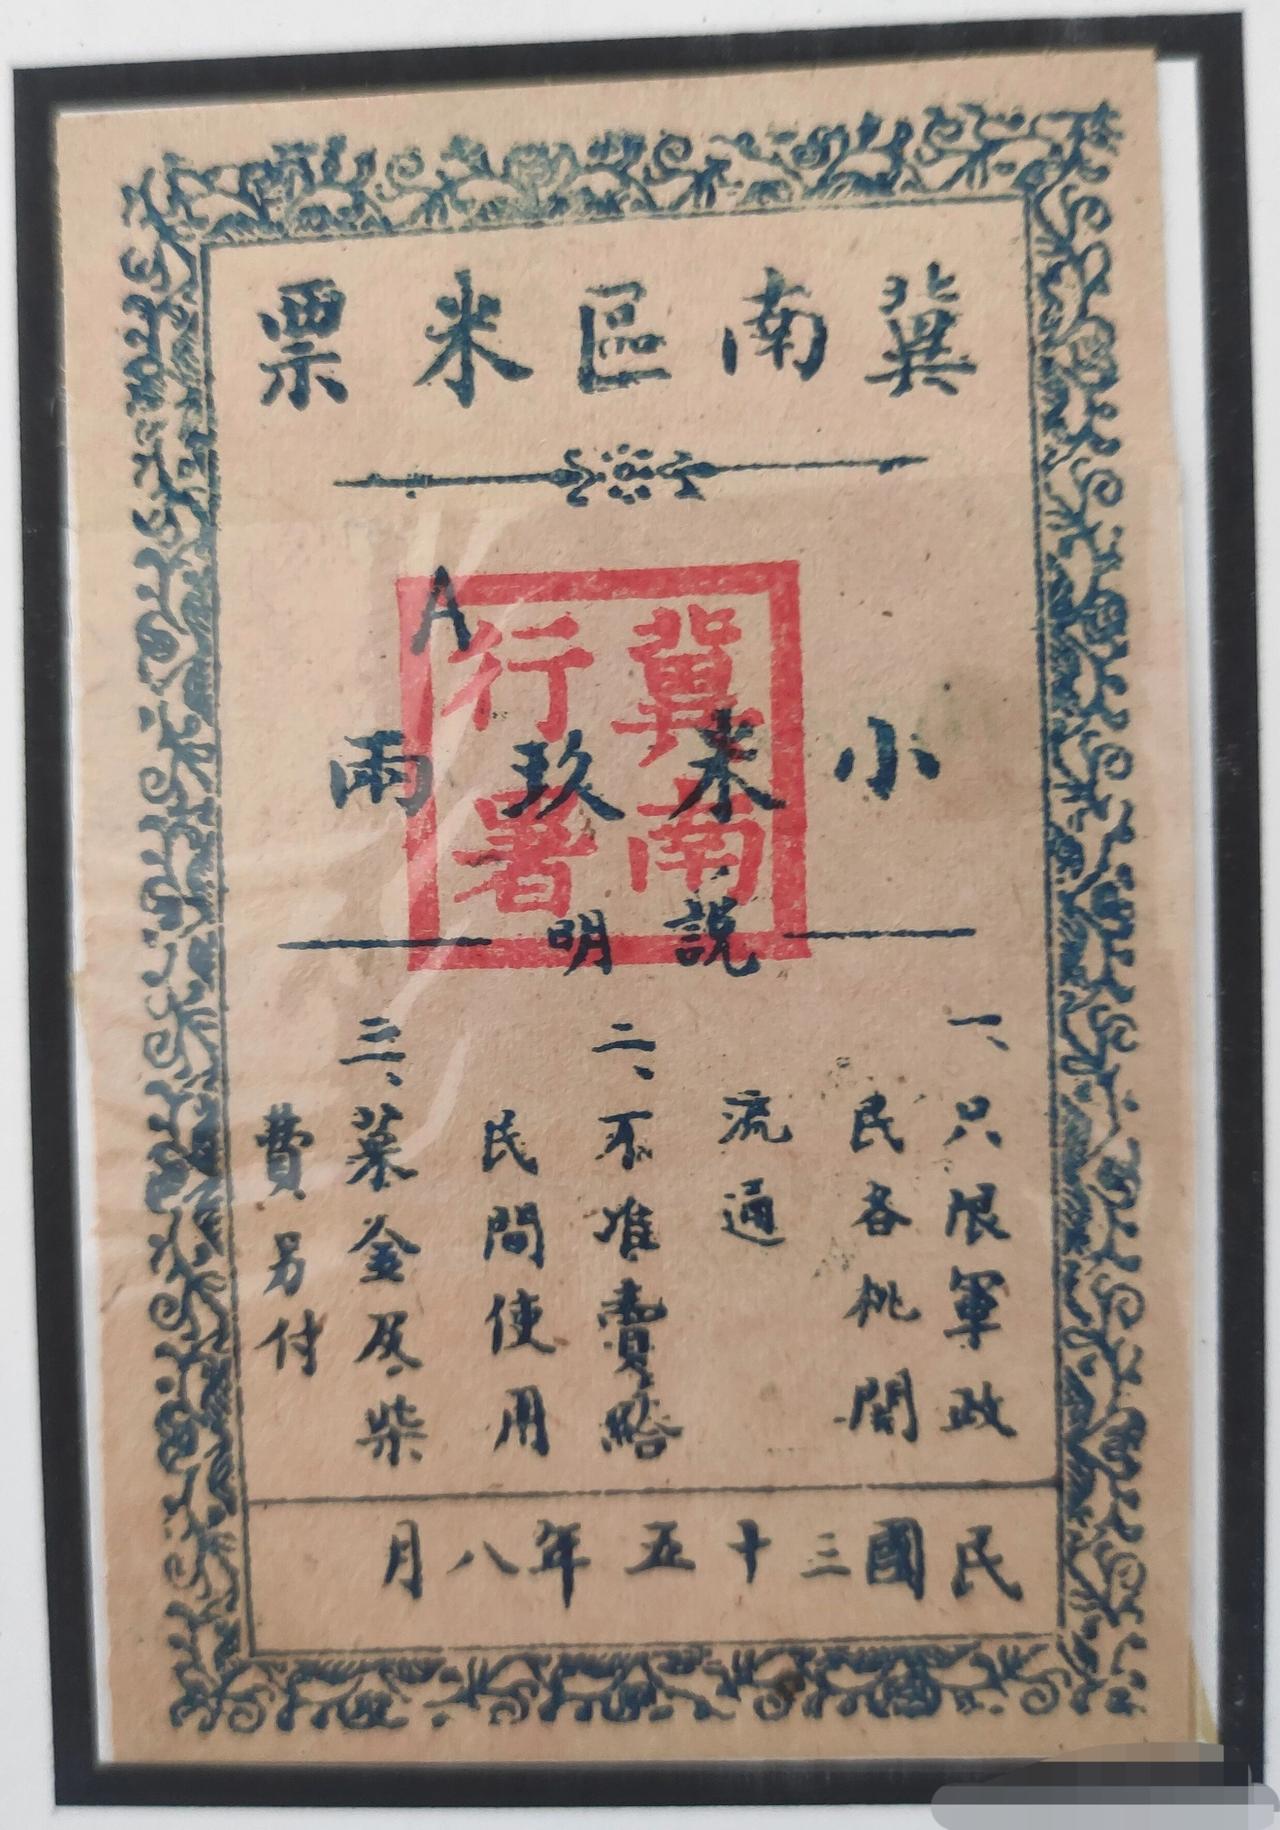 冀南區米票
A
冀南
行署
小米玖兩
說明
一、只限軍政
民各机関
流通
二、不准賣給
民間使用
三、菜金及柴
費另付
民國三十五年八月